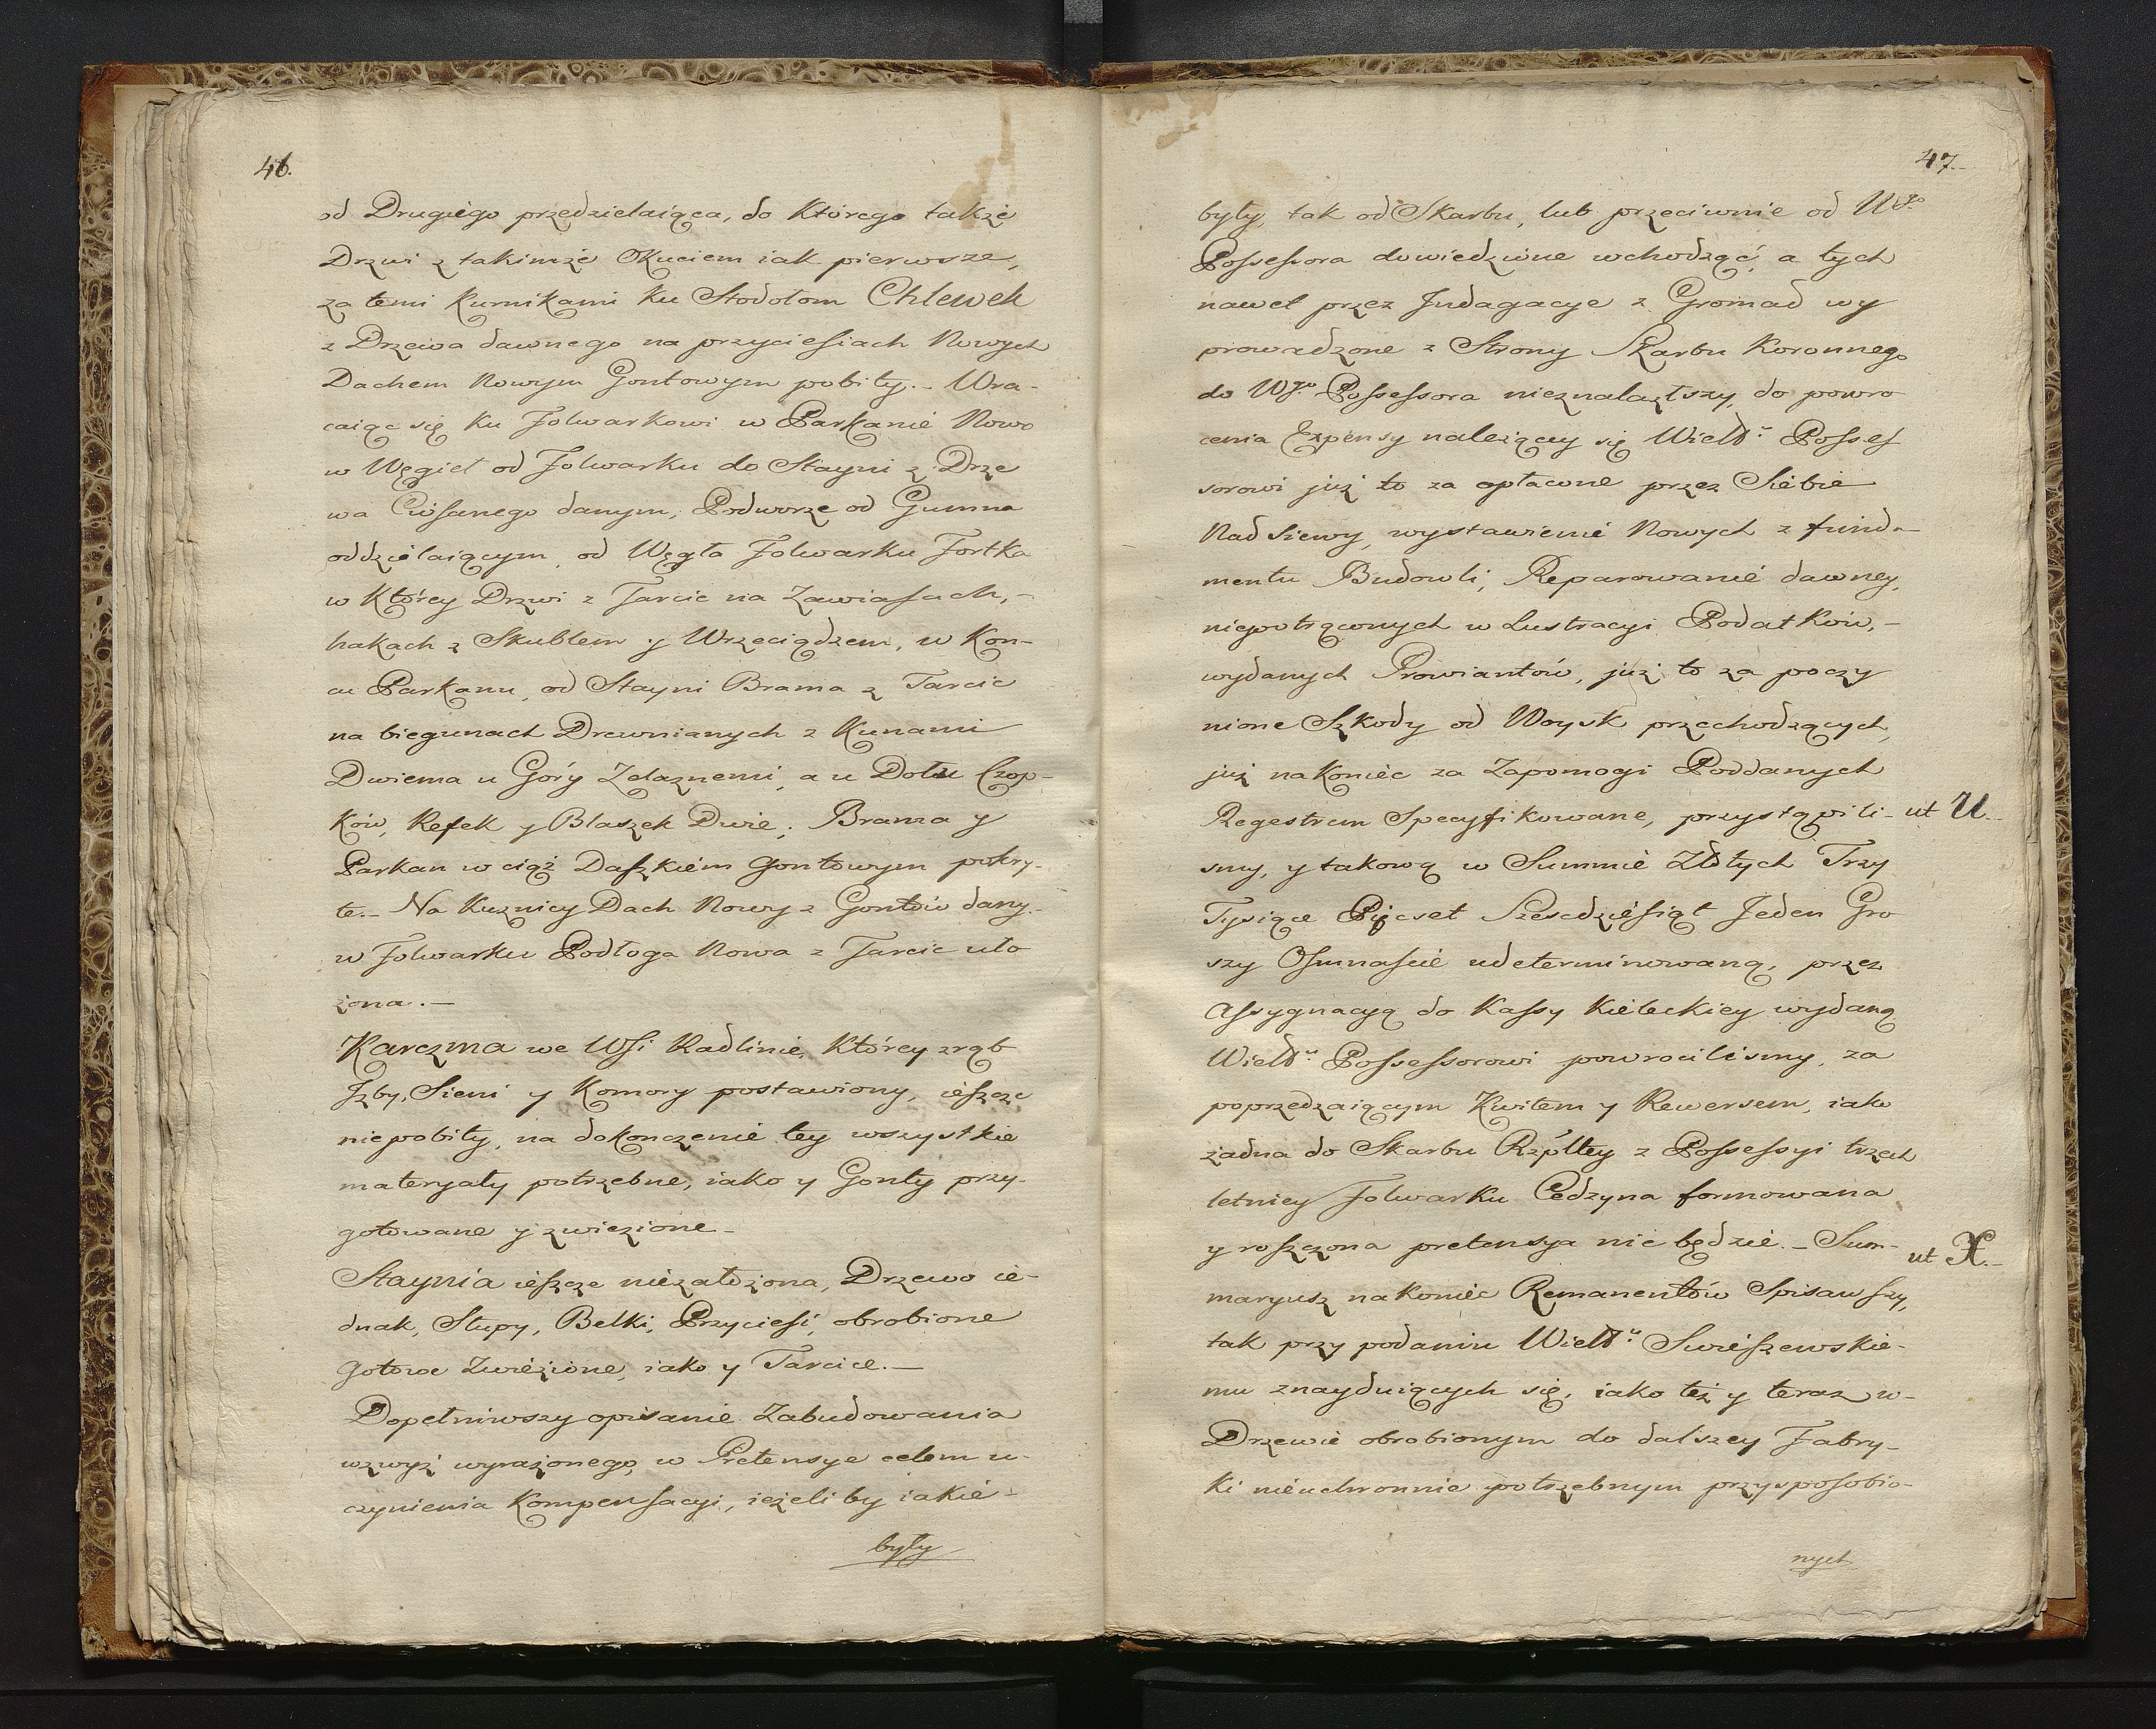 46.
od Drugiego przedzielaiąca, do którego także
Drzwi z takimże Okuciem iak pierwsze,
za temi kurnikami ku Stodołom Chlewek
z Drzewa dawnego na przyciesiach Nowych
Dachem Nowym Gontowym pobity. – Wra-
caiąc się ku Folwarkowi w Parkanie Nowo
w Węgieł od Folwarku do Stayni z Drze
wa Ciosanego danym, Podworze od Gumna
oddzielaiącym, od Węgła Folwarku Fortka
w Którey Drzwi z Tarcic na Zawiasach, –
hakach z Skublem y Wrzeciądzem, w Kon-
cu Parkanu, od Stayni Brama z Tarcic
na biegunach Drewnianych z Kunami
Dwiema u Góry Żelaznemi, a u Dołu Czop-
ków, Refek y Blaszek Dwie; Brama y
Parkan w ciąż Daszkiem gontowym pokry-
te. – Na Kuznicy Dach Nowy z Gontów dany. –
w Folwarku Podłoga Nowa z Tarcic uło
żona. –
Karczma we Wsi Radlinie, Którey zrąb
Izby, Sieni y Komory postawiony, ieszcze
niepobity, na dokonczenie tey wszystkie
materyały potrzebne, iako y Gonty przy-
gotowane y zwiezione –
Staynia ieszcze niezałożona, Drzewo ie-
dnak, Słupy, Belki, Przyciesi, obrobione
gotowe Zwiezione, iako y Tarcice. –
Dopełniwszy opisanie Zabudowania
wzwyż wyrażonego, w Pretensye celem u-
czynienia Kompensacyi, ieżeli by iakie –
były
47.
były, tak od Skarbu, lub przeciwnie od Wgo
Possessora dowiedzione wchodząc, a tych
nawet przez Indagacye z Gromad wy
prowadzone z Strony Skarbu Koronnego
do Wgo Possessora nieznalazłszy, do powro
cenia Expensy należący się Wield: Posses
sorowi już to za opłacone przez Siebie
Nadsiewy, wystawienie Nowych z funda-
mentu Budowli, Reparowanie dawney,
niepotrąconych w Lustracyi Podatków, –
wydanych Prowiantów, już to za poczy
nione Szkody od Woysk przechodzących,
już nakoniec za Zapomogi Poddanych
Regestrem Specyfikowane, przystąpili – ut U. –
smy, y takową w Summie Złotych Trzy
Tysiące Pięcset Szescdziesiąt Jeden Gro
szy Osmnaście udeterminowaną, przez
Assygnacyą do Kassy Kieleckiey wydaną
Wield: Possessorowi powrocilismy, za
poprzedzaiącym Kwitem y Rewersem, iako
żadna do Skarbu Rzpltey z Possessyi trzech
letniey Folwarku Cedzyna formowana
y roszczona pretensya nie będzie. – Sum- ut X. –
maryusz nakoniec Remanentów Spisawszy,
tak przy podaniu Wield: Swieszewskie-
mu znayduiących się, iako też y teraz w –
Drzewie obrobionym do dalszey Fabry-
ki nieuchronnie potrzebnym przysposobio-
nych